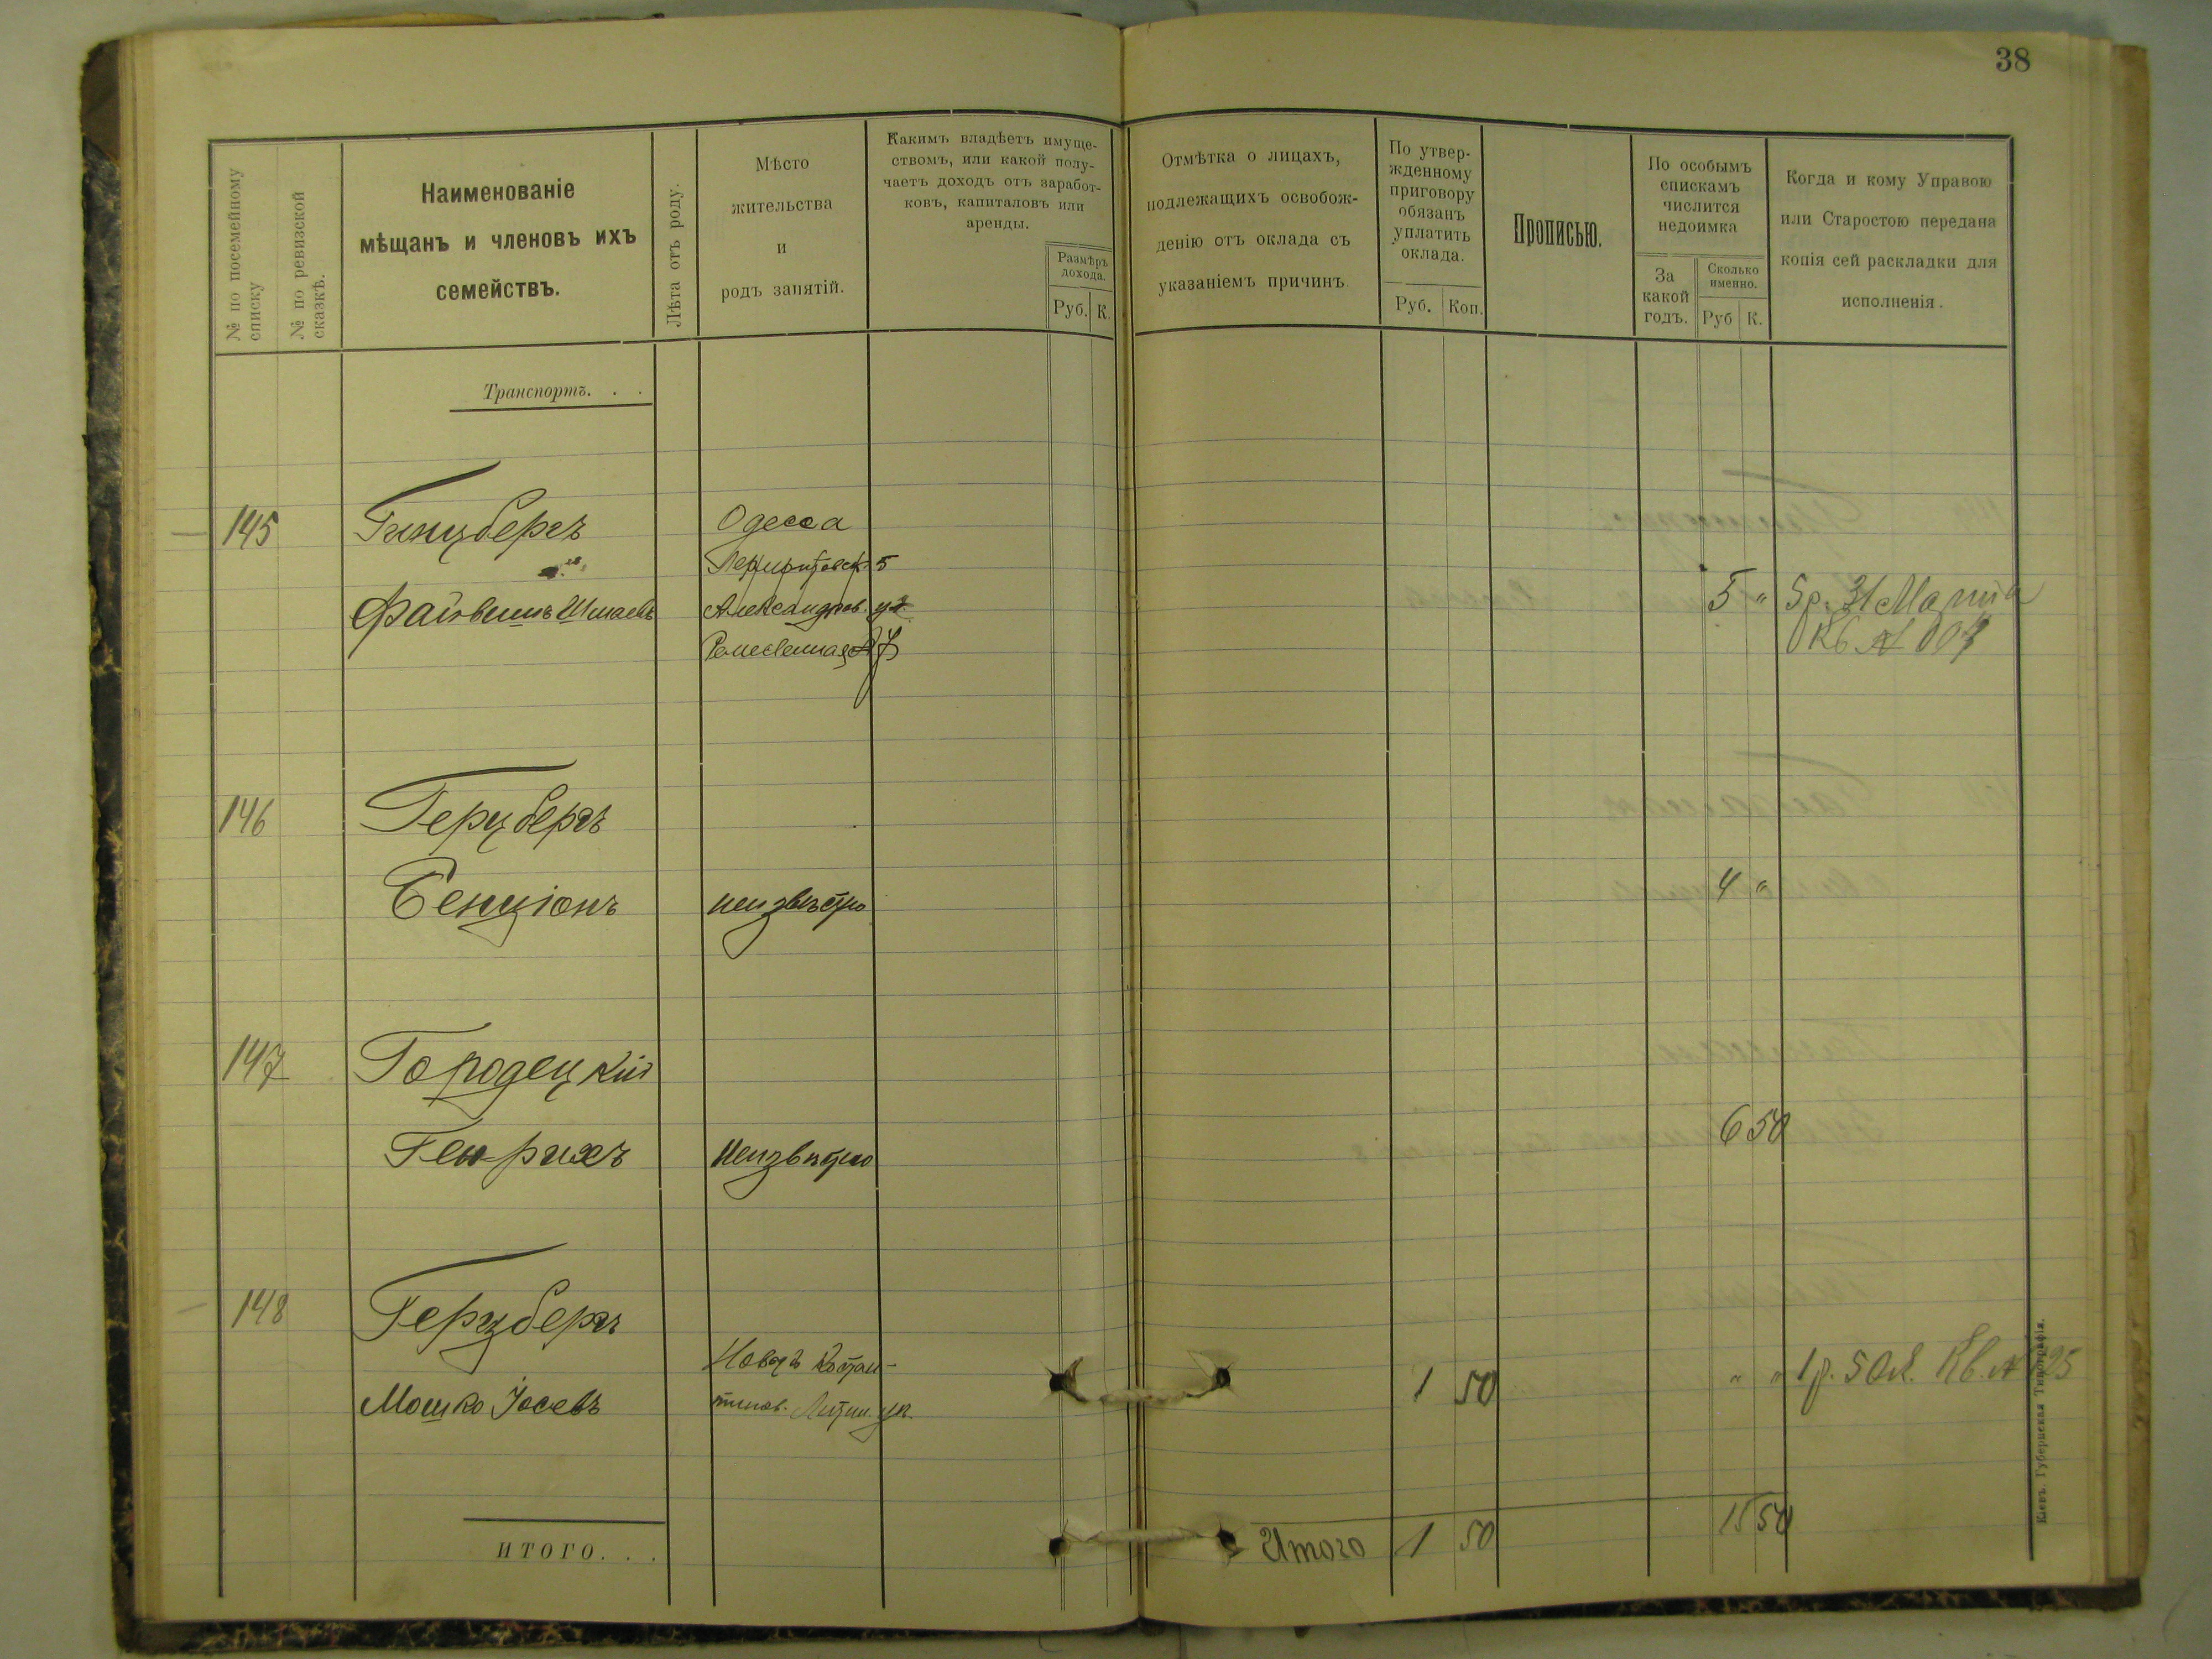 38
№ по посемейному списку
№ по ревизской сказкѣ.
Наименованіе
мѣщанъ и членовъ ихъ
семействъ.
Лѣта отъ роду.
Мѣсто
жительства
и
родъ занятій.
Какимъ владѣетъ имуще-
ствомъ, или какой полу-
чаетъ доходъ отъ заработ-
ковъ, капиталовъ или
аренды.
Размѣръ
дохода.
Руб. К.
Отмѣтка о лицахъ,
подлежащихъ освобож-
денію отъ оклада съ
указаніемъ причинъ
По утвер-
жденному
приговору
обязанъ
уплатить
оклада.
Руб. Коп.
Прописью.
По особымъ
спискамъ
числится
недоимка
За
какой
годъ.
Сколько
именно.
Руб К.
Когда и кому Управою
или Старостою передана
копія сей раскладки для
исполненія.
Транспортъ. . .
145 Гинцбергъ Одесса
5
Файвишъ Шмаевъ Александров. 5 " 5р. 31 Марта
Кв №
146 Герцбергъ
Бенціонъ неизвѣстно 4 "
147 Городецкій
Генрихъ неизвѣстно 6 50
148 Герцбергъ
Новоя Костан-
Мошко Іосевъ тинов. Литин. уѣ. 1 50 " " 1р. 50к. Кв. №
ИТОГО. . .
Итого 1 50 15 50
Кіевъ. Губернская Типографія.